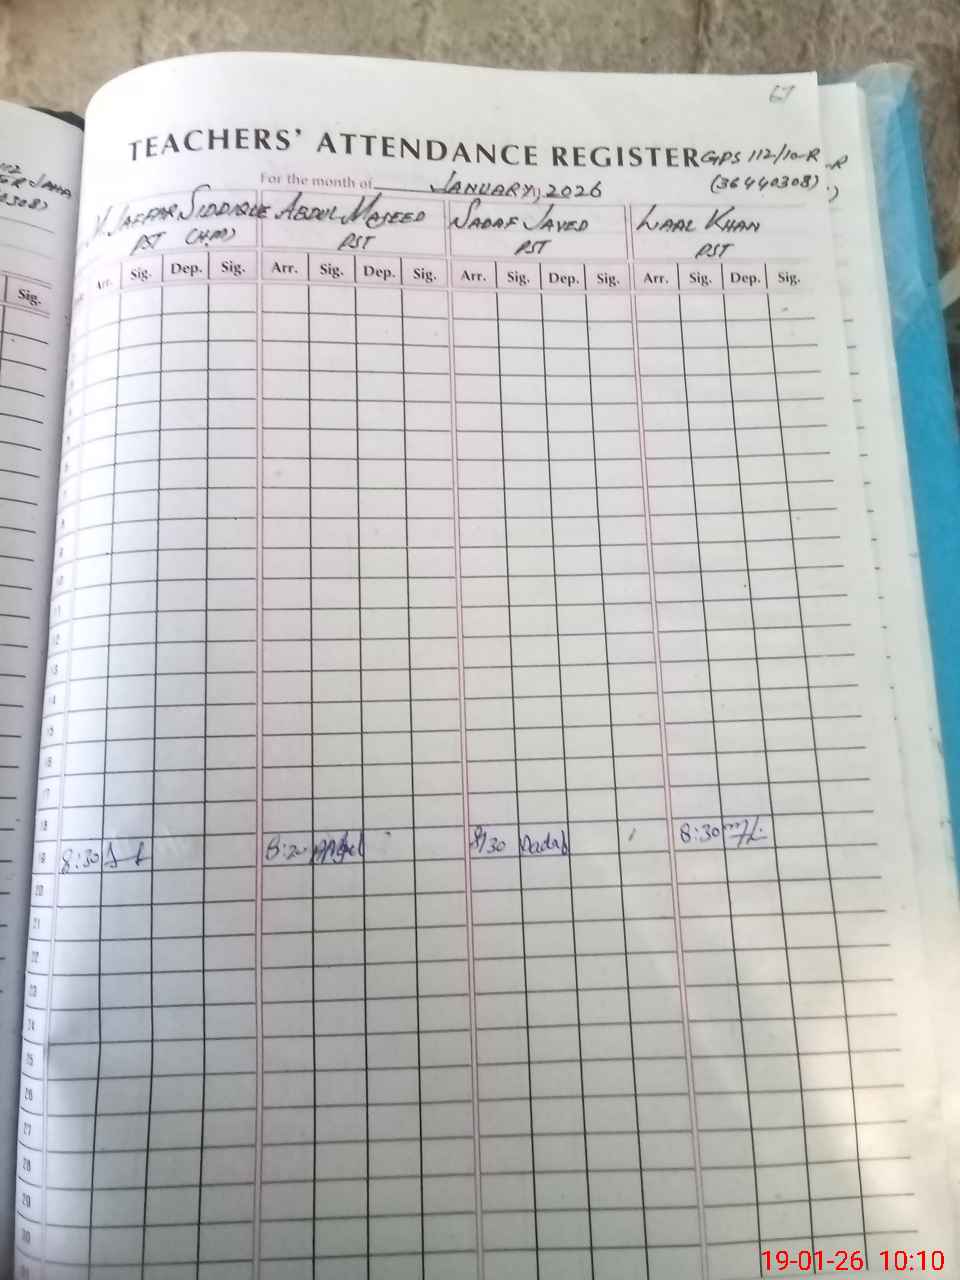 67
TEACHERS' ATTENDANCE REGISTER GPS 112/10-R
For the month of JANUARY, 2026 (36440308)
M. JAFFAR SIDDIQUE ABDUL MAJEED SADAF JAVED LAAL KHAN
PST (H.M) PST PST PST
Arr. Sig. Dep. Sig. Arr. Sig. Dep. Sig. Arr. Sig. Dep. Sig. Arr. Sig. Dep. Sig.
Sig.
9
10
11
12
13
14
15
16
17
18
19 8:30 8:30 8:30 Sadaf 8:30
20
21
22
23
24
25
26
27
28
29
30
31
19-01-26 10:10